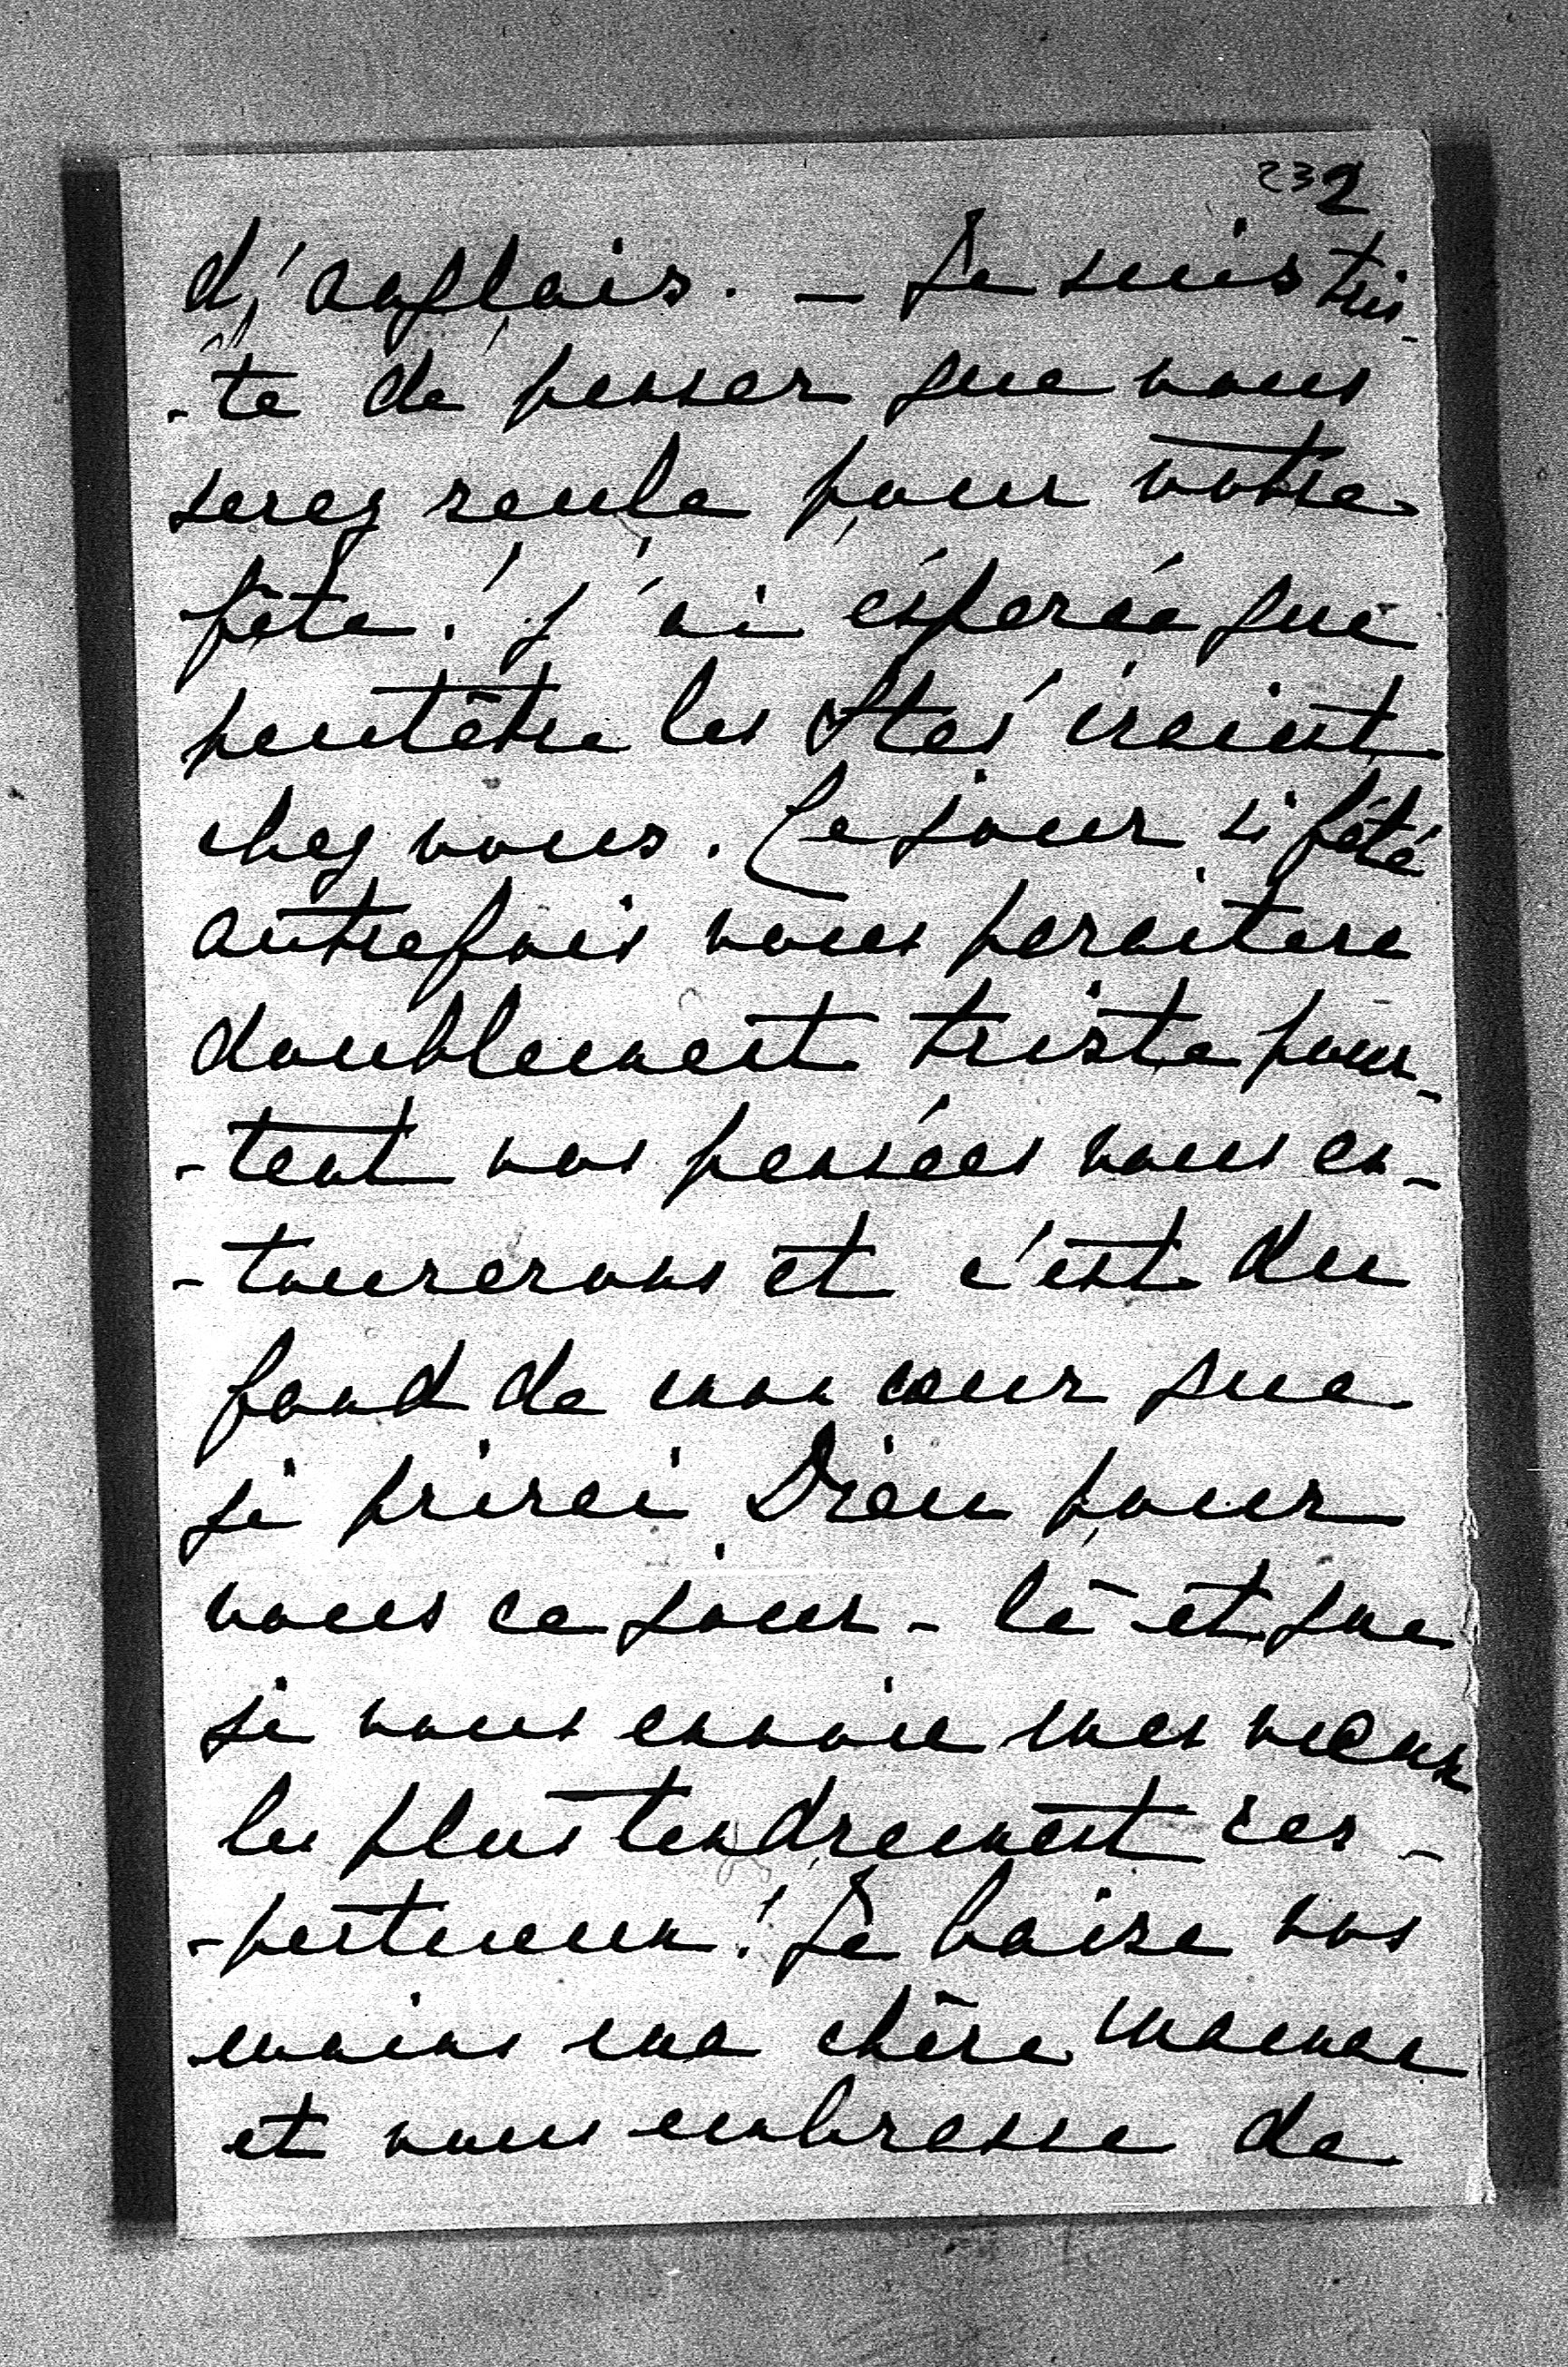 232
d'anglais. — Je suis tris-
-te de penser que vous
serez seule pour votre
fête! J'ai éspérée que
peutêtre les Stas' iraient
chez vous. Ce jour si fêté
autrefois vous paraitera
doublement triste pour-
-tant nos pensées vous en-
-tourerons et c'est du
fond de mon cœur que
je prirai Dieu pour
vous ce jour-là et que
je vous envoie mes vœux
les plus tendrement res-
-pectueux! Je baise vos
mains ma chère Maman
et vous embrasse de